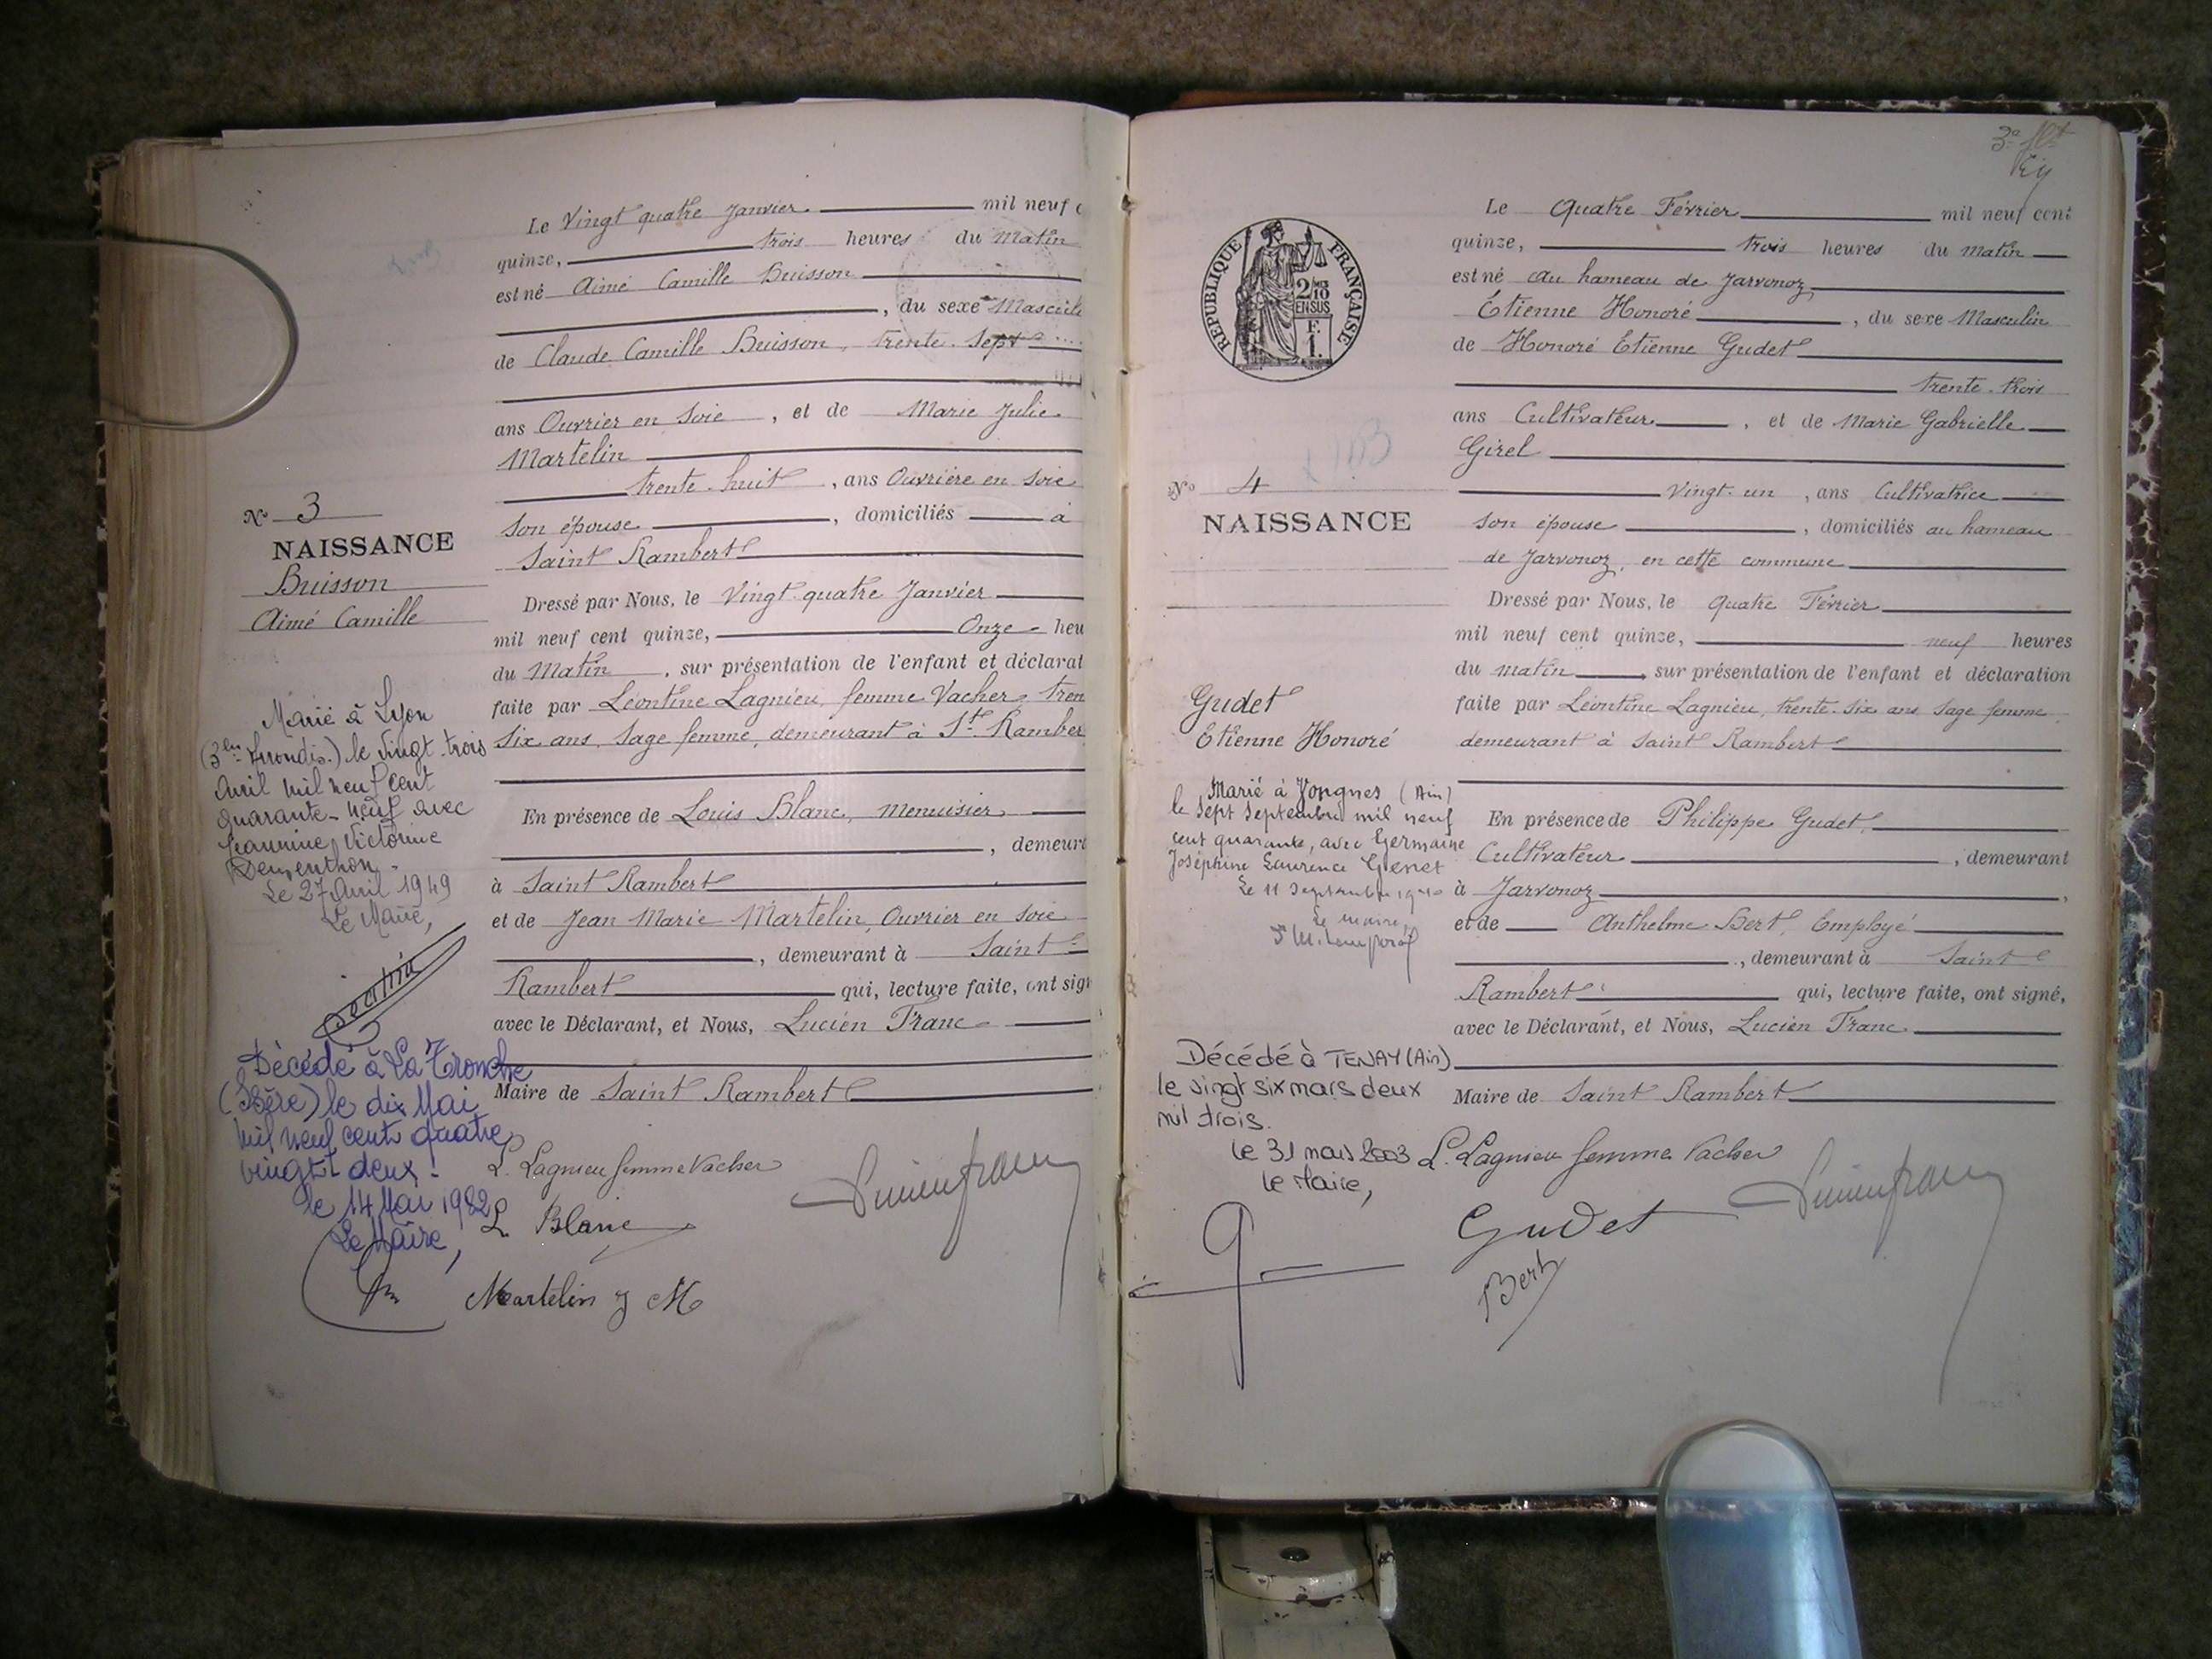 Le Vingt quatre Janvier mil neuf c
quinze, trois heures du Matin
est né Aimé Camille Buisson
, du sexe Masculi
de Claude Camille Buisson, trente-sept
ans Ouvrier en soie, et de Marie Julie
Martelin
trente-huit, ans Ouvrière en soie
son épouse, domiciliés à
Saint Rambert
Dressé par Nous, le Vingt-quatre Janvier
mil neuf cent quinze, Onze heu
du Matin, sur présentation de l'enfant et déclarat
faite par Léontine Lagnieu, femme Vacher, tren
six ans, Sage femme, demeurant à St Ramber
En présence de Louis Blanc, Menuisier
, demeur
à Saint Rambert
et de Jean Marie Martelin, Ouvrier en soie
, demeurant à Saint
Rambert qui, lecture faite, ont sig
avec le Déclarant, et Nous, Lucien Franc
Maire de Saint Rambert
L. Lagnieu femme Vacher
L Blanc
Martelin J M
No 3
NAISSANCE
Buisson
Aimé Camille
Marié à Lyon
(3e Arrondis.) le vingt-trois
Avril mil neuf cent
quarante-neuf avec
Jeannine Victorine
Dementhon.
Le 27 Avril 1949
Le Maire,
Décédé à La Tronche
(Isère) le dix Mai
mil neuf cent quatre
vingt deux.
le 14 Mai 1982
Le Maire,
3e
REPUBLIQUE FRANÇAISE
2/10
EN SUS
F.
1.
Le Quatre Février mil neuf cent
quinze, trois heures du matin
est né au hameau de Jarvonoz
Étienne Honoré, du sexe Masculin
de Honoré Etienne Gudet
trente-trois
ans Cultivateur, et de Marie Gabrielle
Girel
Vingt-un, ans Cultivatrice
son épouse, domiciliés au hameau
de Jarvonoz, en cette commune
Dressé par Nous, le quatre Février
mil neuf cent quinze, neuf heures
du matin, sur présentation de l'enfant et déclaration
faite par Léontine Lagnieu, trente-six ans Sage femme,
demeurant à Saint Rambert
En présence de Philippe Gudet,
Cultivateur, demeurant
à Jarvonoz,
et de Anthelme Bert, Employé
, demeurant à Saint
Rambert qui, lecture faite, ont signé,
avec le Déclarant, et Nous, Lucien Franc
Maire de Saint Rambert
L. Lagnieu femme Vacher
Gudet
Bert
No 4
NAISSANCE
Gudet
Etienne Honoré
Marié à Yongnes (Ain)
le Sept Septembre mil neuf
cent quarante, avec Germaine
Joséphine Laurence Genet
Le 11 Septembre 1940
Le maire,
Décédé à TENAY (Ain)
le vingt six mars deux
mil trois.
le 31 mars 2003
le Maire,